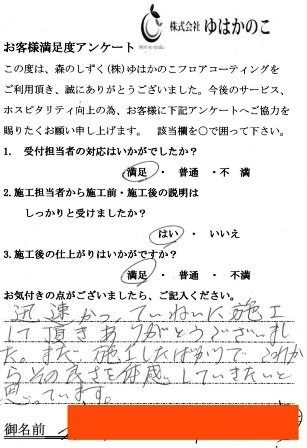 株式会社 ゆはかのこ
お客様満足度アンケート
この度は、森のしずく(株)ゆはかのこフロアコーティングを
ご利用頂き、誠にありがとうございました。今後のサービス、
ホスピタリティ向上の為、お客様に下記アンケートへご協力を
賜りたくお願い申し上げます。 該当欄を○で囲って下さい。
1. 受付担当者の対応はいかがでしたか？
満足 ・ 普通 ・不 満
2.施工担当者から施工前・施工後の説明は
しっかりと受けましたか？
はい ・ いいえ
3.施工後の仕上がりはいかがですか？
満足 ・ 普通 ・ 不満
お気付きの点がございましたら、ご記入ください。
迅速かつ、ていねいに施工
して頂きありがとうございまし
た。まだ、施工したばかりで、これか
らその良さを体感していきたいと
思っています。
御名前